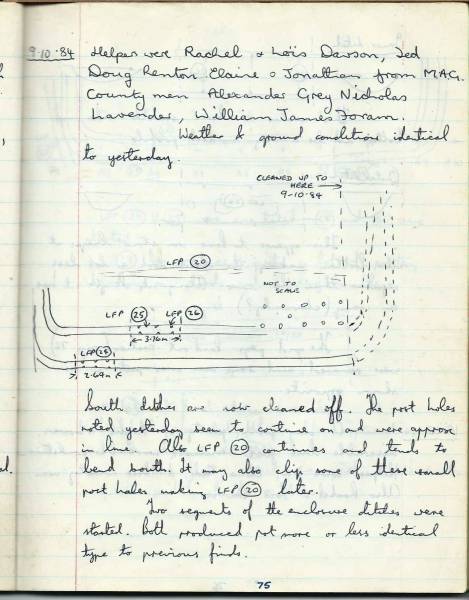 9·10·84 Helpers were Rachel & Loïs Dawson, Ted
Doug Renton Elaine & Jonathan from M.A.G.
County men Alexander Grey Nicholas
Lavender, William James Foram.
Weather & ground conditions identical
to yesterday.
CLEANED UP TO
HERE
9-10-84
LFP 20
NOT TO
SCALE
LFP 25 LFP 26
3.76m
LFP
2.69m
South ditches are now cleaned off. The post holes
noted yesterday seem to continue on and were approx
in line. Also LFP 20 continues and tends to
bend south. It may also clip some of these small
post holes making LFP 20 later.
Two segments of the enclosure ditches were
started. Both produced pot more or less identical
type to previous finds.
75